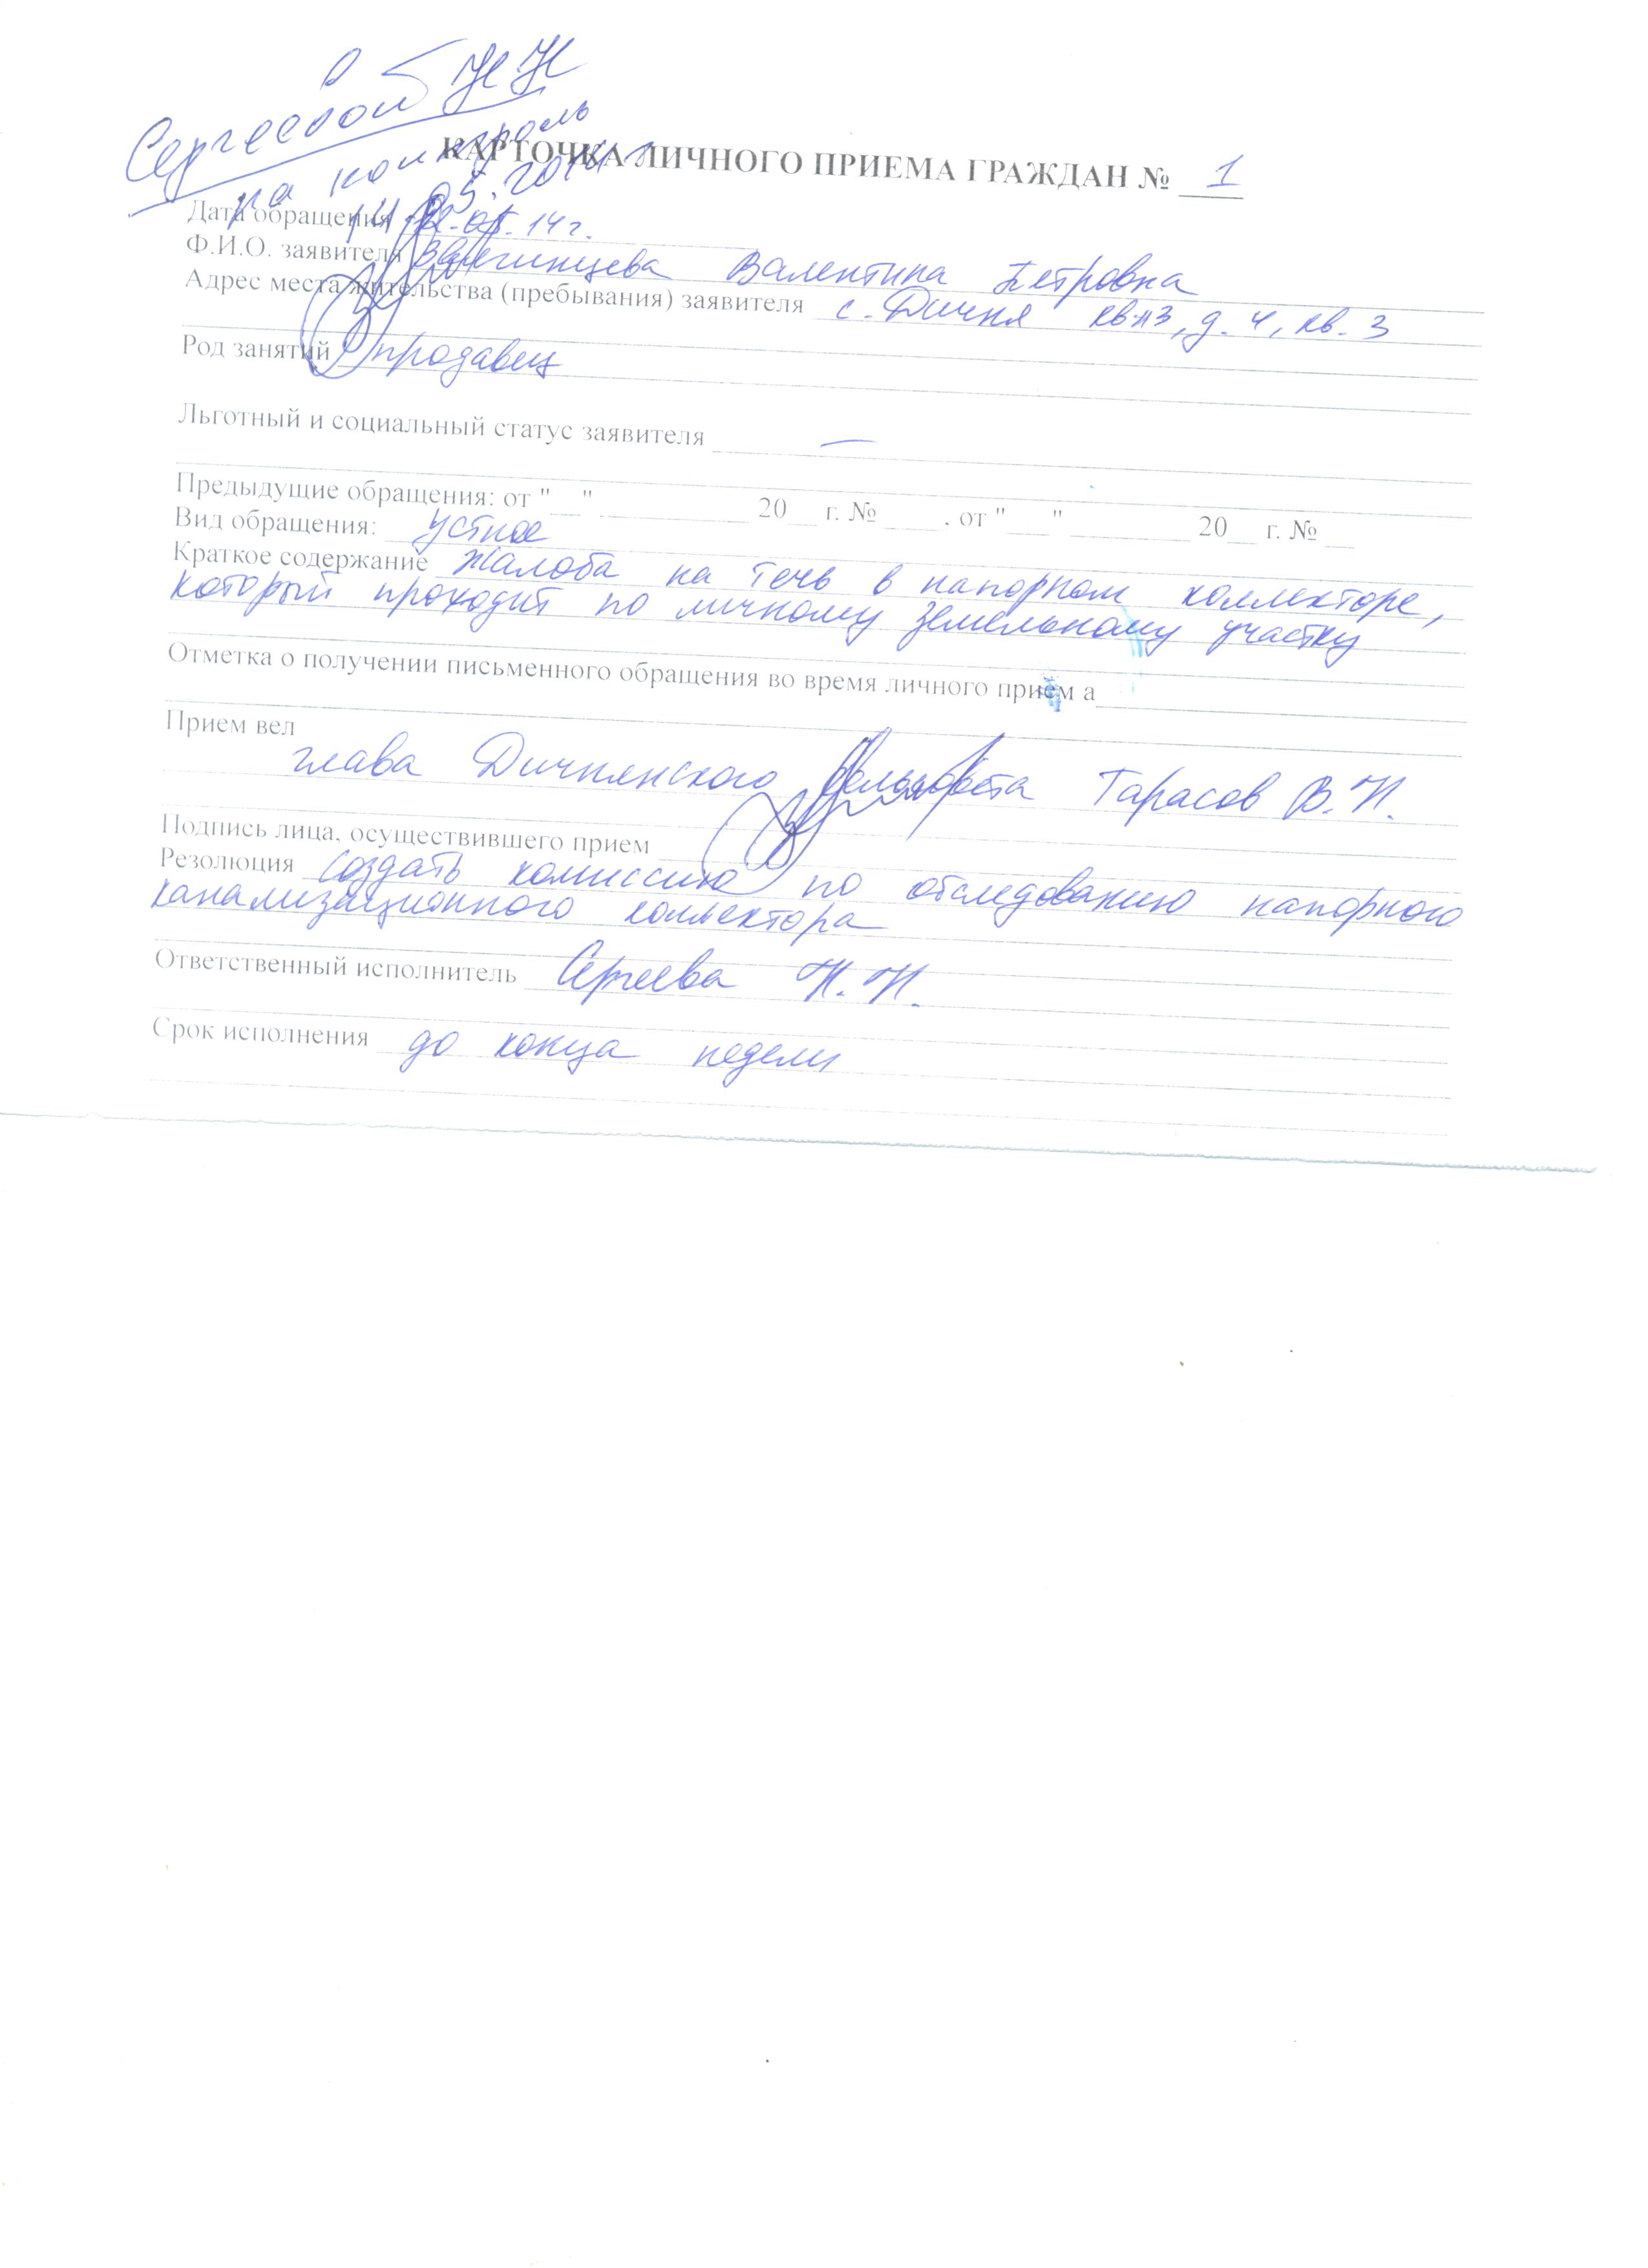 Сергеевой Н.Н
на контроль
14.05.2014г
КАРТОЧКА ЛИЧНОГО ПРИЕМА ГРАЖДАН № 1
Дата обращения 14г.
Ф.И.О. заявителя Валентина Петровна
Адрес места жительства (пребывания) заявителя с. Дичня кв-л 3, д. 4, кв. 3
Род занятий продавец
Льготный и социальный статус заявителя —
Предыдущие обращения: от "__" ________ 20__ г. № ____. от "___" ________ 20__ г. № __
Вид обращения: устное
Краткое содержание Жалоба на течь в напорном коллекторе,
который проходит по личному земельному участку
Отметка о получении письменного обращения во время личного прием а
Прием вел
глава Дичнянского сельсовета Тарасов В.Н.
Подпись лица, осуществившего прием
Резолюция создать комиссию по обследованию напорного
канализационного коллектора
Ответственный исполнитель Сергеева Н.Н.
Срок исполнения до конца недели